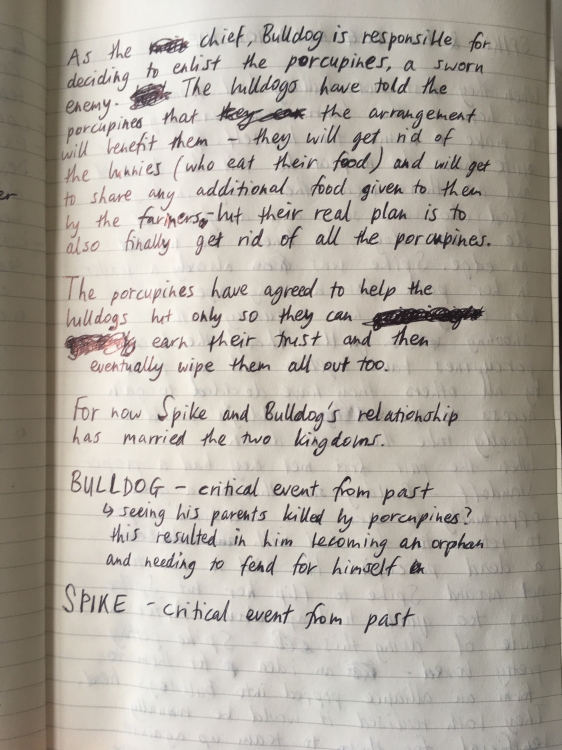 As the chief, Bulldog is responsible for
deciding to enlist the porcupines, a sworn
enemy. The bulldogs have told the
porcupines that they can the arrangement
will benefit them - they will get rid of
the bunnies (who eat their food) and will get
to share any additional food given to them
by the farmers, - but their real plan is to
also finally get rid of all the porcupines.
The porcupines have agreed to help the
bulldogs but only so they can
earn their trust and then
eventually wipe them all out too.
For now Spike and Bulldog's relationship
has married the two kingdoms.
BULLDOG - critical event from past
↳ seeing his parents killed by porcupines?
this resulted in him becoming an orphan
and needing to fend for himself in
SPIKE - critical event from past
er